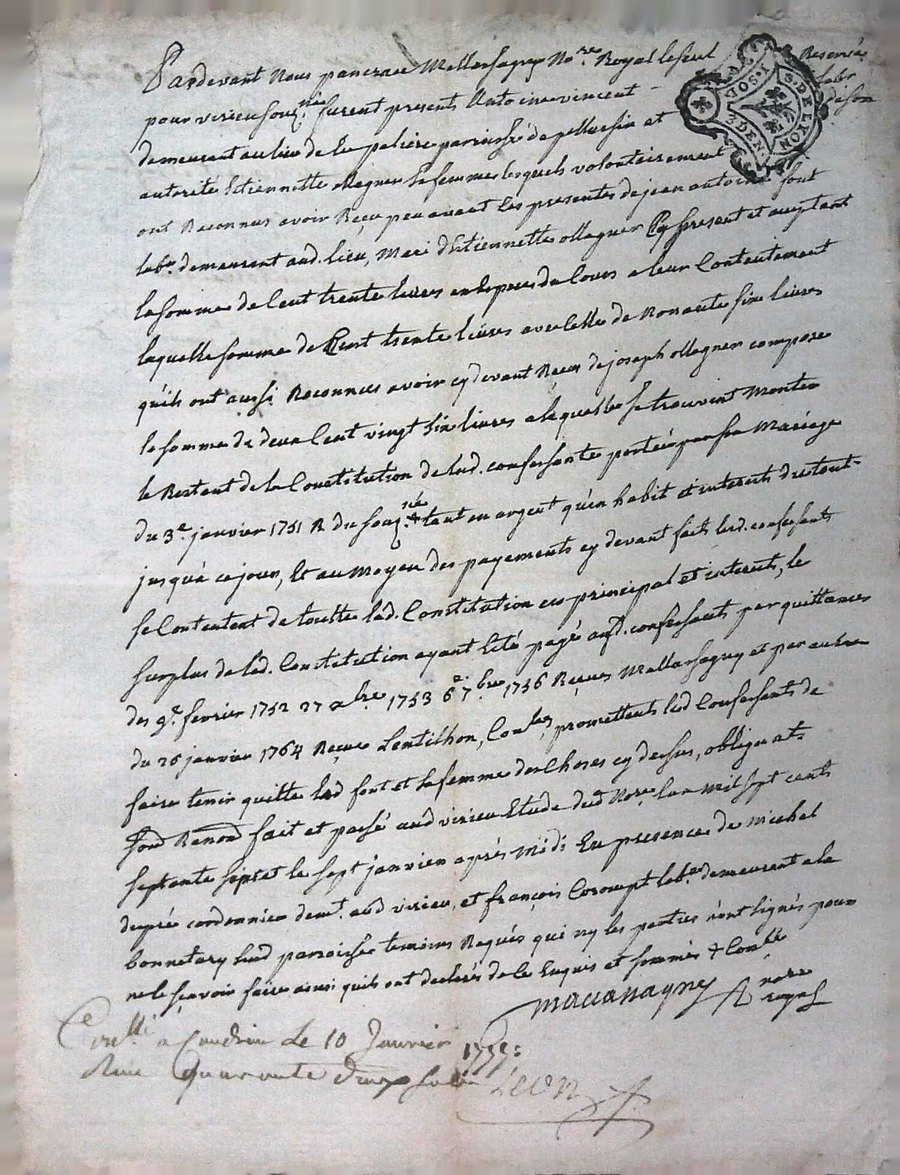 Pardevant Nous pancrace Mallassagny No.re Royal le seul Reservé
pour virieu souz.né furent presents Antoine vincent labr
demeurant au lieu de la paliere parroisse de pellussin et de son
autorité Etiennette Magner sa femme lesquels volontairement
ont Reconnus avoir Reçu peu avant les presentes de jean antoine font
labr. demeurant aud. lieu, Mari d'Etiennette Magner Cy present et acceptant
la somme de Cent trente livres en Especes du Cours a leur Contentement
laquelle somme de Cent trente livres avec Celle de Nonante six livres
qu'ils ont aussi Reconnus avoir cy devant Recu de joseph Magner compose
la somme de deux Cent vingt six livres a laquelle se trouvent Monter
le Restant de la Constitution de lad. confessante portée par son Mariage
du 3e. janvier 1751 R. du souz.né tant en argent qu'en habit et interets du tout
jusqu'à ce jour, Et au Moyen des payements cy devant faits lesd. confessants
se Contentent de toutte lad. Constitution en principal et interets, le
surplus de lad. Constitution ayant Eté payé aud. confessants par quittances
des 9e. fevrier 1752 27 1753 6e 7bre 1756 Reçues Mallassagny et par autre
du 26 janvier 1764 Reçue Lentilhon, promettent lesd Confessants de
faire tenir quitte led font et sa femme des Choses cy dessus, obligeat.
Renon fait et passé aud virieu Etude dud Nore. l'an Mil sept cents
septante sept et le sept janvier après midi En presence de michel
dupré cordonnier demt. aud virieu, et françois Corompt labr demeurant a la
bonnetary susd parroisse temoins Requis qui ny les parties n'ont signés pour
ne le sçavoir faire ainsi qu'ils ont declarés de le Enquis et sommés
mallassagny nore
royal
Cn.llé a Condrieu Le 10 Janvier 1777
Reçu quarante deux sols
Leon
S. DE LYON
I. SOL
3. DEN